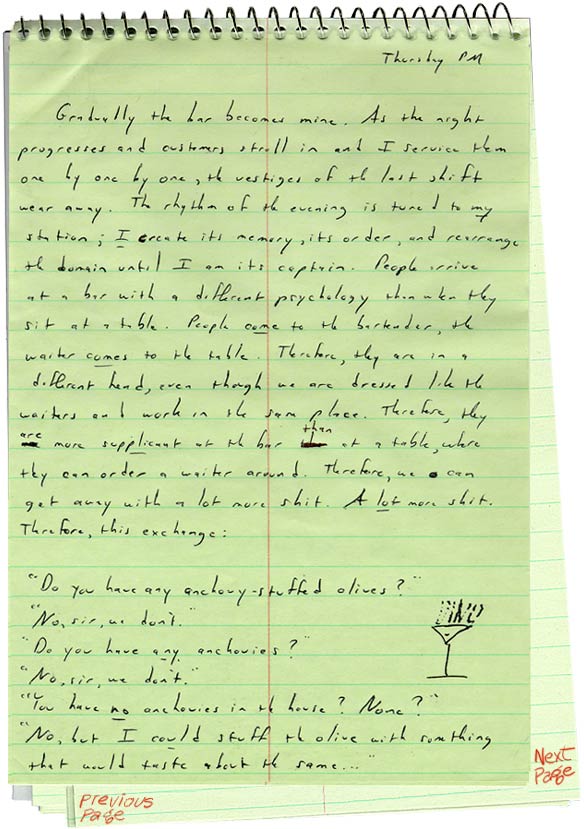 Thursday PM
Gradually the bar becomes mine. As the night
progresses and customers stroll in and I service them
one by one by one, the vestiges of the last shift
wear away. The rhythm of the evening is tuned to my
station; I create its memory, its order, and rearrange
the domain until I am its captain. People arrive
at a bar with a different psychology than when they
sit at a table. People come to the bartender, the
waiter comes to the table. Therefore, they are in a
different head, even though we are dressed like the
waiters and work in the same place. Therefore, they
are more supplicant at the bar than at a table, where
they can order a waiter around. Therefore, we can
get away with a lot more shit. A lot more shit.
Therefore, this exchange:
"Do you have any anchovy-stuffed olives?"
"No, sir, we don't."
"Do you have any anchovies?"
"No, sir, we don't."
"You have no anchovies in the house? None?"
"No, but I could stuff the olive with something
that would taste about the same..."
Next
Page
Previous
Page